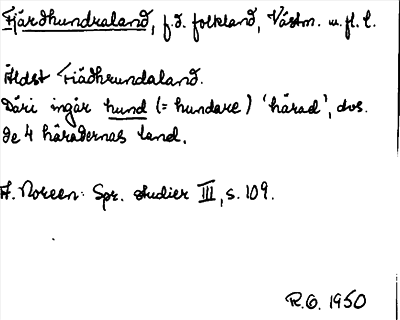 Fjärdhundraland, f.d. folkland, Västm. m.fl. l.
Äldst Fiädhrundaland.
Däri ingår hund (= hundare) 'härad', dvs.
de 4 häradernas land.
A. Noreen: Spr. studier III, s. 109.
R.O. 1950